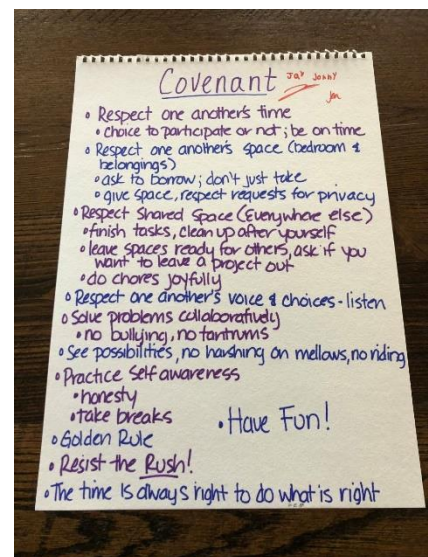 Covenant Jay Jonny
Jen
• Respect one another's time
• choice to participate or not; be on time
• Respect one another's space (bedroom &
belongings)
• ask to borrow; don't just take
• give space, respect requests for privacy
• Respect Shared Space (Everywhere else)
• finish tasks, clean up after yourself
• leave spaces ready for others, ask if you
want to leave a project out
• do chores joyfully
• Respect one another's voice & choices - listen
• Solve problems collaboratively
• no bullying, no tantrums
• See possibilities, no harshing on mellows, no riding
• Practice Self awareness
• honesty
• take breaks
• Have Fun!
• Golden Rule
• Resist the Rush!
• The time is always right to do what is right